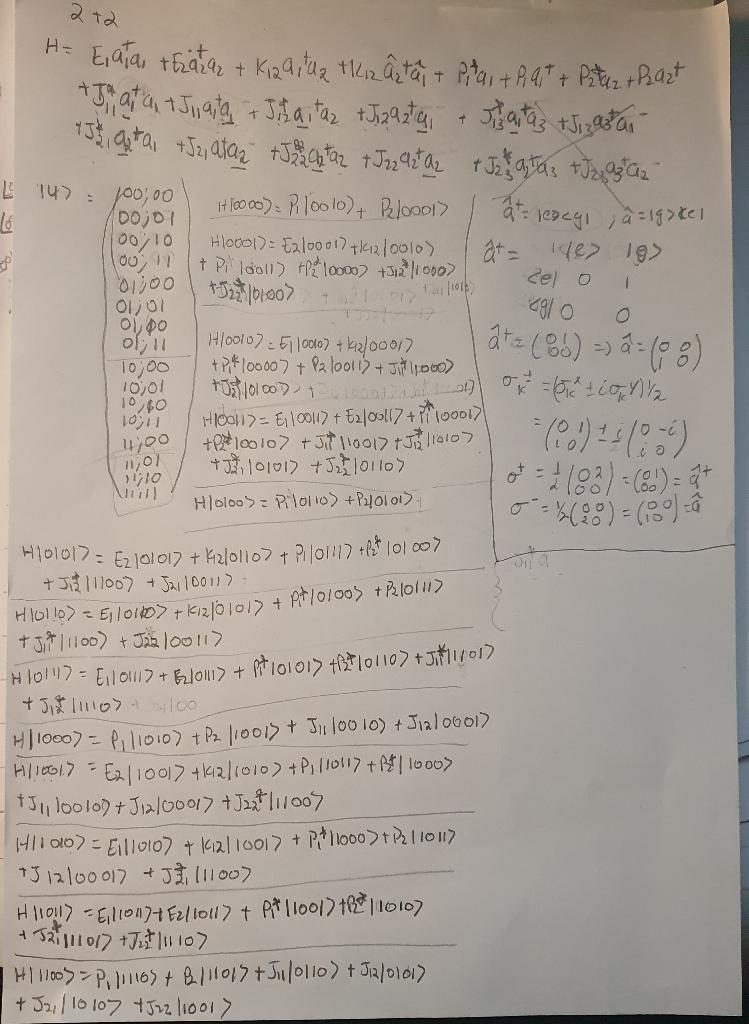 2+2
H = E₁a₁⁺a₁ + E₂a₂⁺a₂ + K₁₂a₁⁺a₂ + K₁₂ â₂⁺â₁ + P₁*a₁ + P₁a₁⁺ + P₂*a₂ + P₂a₂⁺
+ J₁₁* a₁⁺a₁ + J₁₁a₁⁺a₁ + J₁₂* a₁⁺a₂ + J₁₂a₂⁺a₁ + J₁₃* a₁⁺a₃ + J₁₃a₃⁺a₁
+ J₂₁* a₂⁺a₁ + J₂₁a₁⁺a₂ + J₂₂* a₂⁺a₂ + J₂₂a₂⁺a₂ + J₂₃* a₂⁺a₃ + J₂₃a₃⁺a₂
|ψ> =
00;00
00;01
00;10
00;11
01;00
01;01
01;10
01;11
10;00
10;01
10;10
10;11
11;00
11;01
11;10
11;11
H|0000> = P₁|0010> + P₂|0001>
H|0001> = E₂|0001> + K₁₂|0010>
+ P₁|0011> + P₂*|0000> + J₁₂*|1000>
+ J₂₂*|0100>
H|0010> = E₁|0010> + K₁₂|0001>
+ P₁*|0000> + P₂|0011> + J₁₁*|1000>
+ J₂₁*|0100>
H|0011> = E₁|0011> + E₂|0011> + P₁*|0001>
+ P₂*|0010> + J₁₁*|1001> + J₁₂*|1010>
+ J₂₁*|0101> + J₂₂*|0110>
H|0100> = P₁|0110> + P₂|0101>
â⁺ = |e><g| ; â = |g><e|
â⁺ = |e> |g>
<e| 0 1
<g| 0 0
â⁺ = (0 1
0 0) => â = (0 0
1 0)
σₖ± = (σₖˣ ± iσₖʸ)½
= (0 1
1 0) ± i (0 -i
i 0)
σ⁺ = ½ (0 2
0 0) = (0 1
0 0) = â⁺
σ⁻ = ½ (0 0
2 0) = (0 0
1 0) = â
H|0101> = E₂|0101> + K₁₂|0110> + P₁|0111> + P₂*|0100>
+ J₁₂*|1100> + J₂₁|0011>
H|0110> = E₁|0110> + K₁₂|0101> + P₁*|0100> + P₂|0111>
+ J₁₁*|1100> + J₂₂|0011>
H|0111> = E₁|0111> + E₂|0111> + P₁*|0101> + P₂*|0110> + J₁₁*|1101>
+ J₁₂*|1110>
H|1000> = P₁|1010> + P₂|1001> + J₁₁|0010> + J₁₂|0001>
H|1001> = E₂|1001> + K₁₂|1010> + P₁|1011> + P₂*|1000>
+ J₁₁|0010> + J₁₂|0001> + J₂₂*|1100>
H|1010> = E₁|1010> + K₁₂|1001> + P₁*|1000> + P₂|1011>
+ J₁₂|0001> + J₂₁*|1100>
H|1011> = E₁|1011> + E₂|1011> + P₁*|1001> + P₂*|1010>
+ J₂₁*|1101> + J₂₂*|1110>
H|1100> = P₁|1110> + P₂|1101> + J₁₁|0110> + J₁₂|0101>
+ J₂₁|1010> + J₂₂|1001>